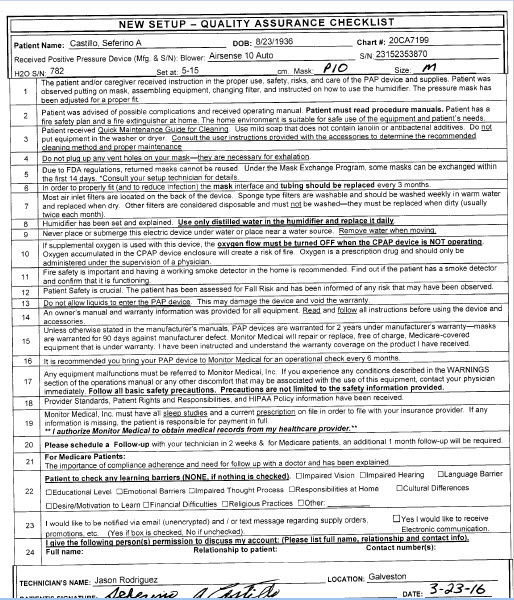 NEW SETUP – QUALITY ASSURANCE CHECKLIST
Patient Name: Castillo, Seferino A DOB: 8/23/1936 Chart #: 20CA7199
Received Positive Pressure Device (Mfg. & S/N): Blower: Airsense 10 Auto S/N: 23152353870
H2O S/N: 782 Set at: 5-15 cm. Mask: P10 Size: M
1 The patient and/or caregiver received instruction in the proper use, safety, risks, and care of the PAP device and supplies. Patient was
observed putting on mask, assembling equipment, changing filter, and instructed on how to use the humidifier. The pressure mask has
been adjusted for a proper fit.
2 Patient was advised of possible complications and received operating manual. Patient must read procedure manuals. Patient has a
fire safety plan and a fire extinguisher at home. The home environment is suitable for safe use of the equipment and patient's needs.
3 Patient received Quick Maintenance Guide for Cleaning. Use mild soap that does not contain lanolin or antibacterial additives. Do not
put equipment in the washer or dryer. Consult the user instructions provided with the accessories to determine the recommended
cleaning method and proper maintenance
4 Do not plug up any vent holes on your mask—they are necessary for exhalation.
5 Due to FDA regulations, returned masks cannot be reused. Under the Mask Exchange Program, some masks can be exchanged within
the first 14 days. *Consult your setup technician for details.
6 In order to properly fit (and to reduce infection) the mask interface and tubing should be replaced every 3 months.
7 Most air inlet filters are located on the back of the device. Sponge type filters are washable and should be washed weekly in warm water
and replaced when dry. Other filters are considered disposable and must not be washed—they must be replaced when dirty (usually
twice each month).
8 Humidifier has been set and explained. Use only distilled water in the humidifier and replace it daily.
9 Never place or submerge this electric device under water or place near a water source. Remove water when moving.
10 If supplemental oxygen is used with this device, the oxygen flow must be turned OFF when the CPAP device is NOT operating.
Oxygen accumulated in the CPAP device enclosure will create a risk of fire. Oxygen is a prescription drug and should only be
administered under the supervision of a physician.
11 Fire safety is important and having a working smoke detector in the home is recommended. Find out if the patient has a smoke detector
and confirm that it is functioning.
12 Patient Safety is crucial. The patient has been assessed for Fall Risk and has been informed of any risk that may have been observed.
13 Do not allow liquids to enter the PAP device. This may damage the device and void the warranty.
14 An owner's manual and warranty information was provided for all equipment. Read and follow all instructions before using the device and
accessories.
15 Unless otherwise stated in the manufacturer's manuals, PAP devices are warranted for 2 years under manufacturer's warranty—masks
are warranted for 90 days against manufacturer defect. Monitor Medical will repair or replace, free of charge, Medicare-covered
equipment that is under warranty. I have been instructed and understand the warranty coverage on the product I have received.
16 It is recommended you bring your PAP device to Monitor Medical for an operational check every 6 months.
17 Any equipment malfunctions must be referred to Monitor Medical, Inc. If you experience any conditions described in the WARNINGS
section of the operations manual or any other discomfort that may be associated with the use of this equipment, contact your physician
immediately. Follow all basic safety precautions. Precautions are not limited to the safety information provided.
18 Provider Standards, Patient Rights and Responsibilities, and HIPAA Policy information have been received.
19 Monitor Medical, Inc. must have all sleep studies and a current prescription on file in order to file with your insurance provider. If any
information is missing, the patient is responsible for payment in full.
** I authorize Monitor Medical to obtain medical records from my healthcare provider.**
20 Please schedule a Follow-up with your technician in 2 weeks & for Medicare patients, an additional 1 month follow-up will be required.
21 For Medicare Patients:
The importance of compliance adherence and need for follow up with a doctor and has been explained.
22 Patient to check any learning barriers (NONE, if nothing is checked). ☐Impaired Vision ☐Impaired Hearing ☐Language Barrier
☐Educational Level ☐Emotional Barriers ☐Impaired Thought Process ☐Responsibilities at Home ☐Cultural Differences
☐Desire/Motivation to Learn ☐Financial Difficulties ☐Religious Practices ☐Other:
23 I would like to be notified via email (unencrypted) and / or text message regarding supply orders, ☐Yes I would like to receive
promotions, etc. (Yes if box is checked, No if unchecked). Electronic communication.
24 I give the following person(s) permission to discuss my account: (Please list full name, relationship and contact info).
Full name: Relationship to patient: Contact number(s):
TECHNICIAN'S NAME: Jason Rodriguez LOCATION: Galveston
PATIENT'S SIGNATURE: Seferino A Castillo DATE: 3-23-16